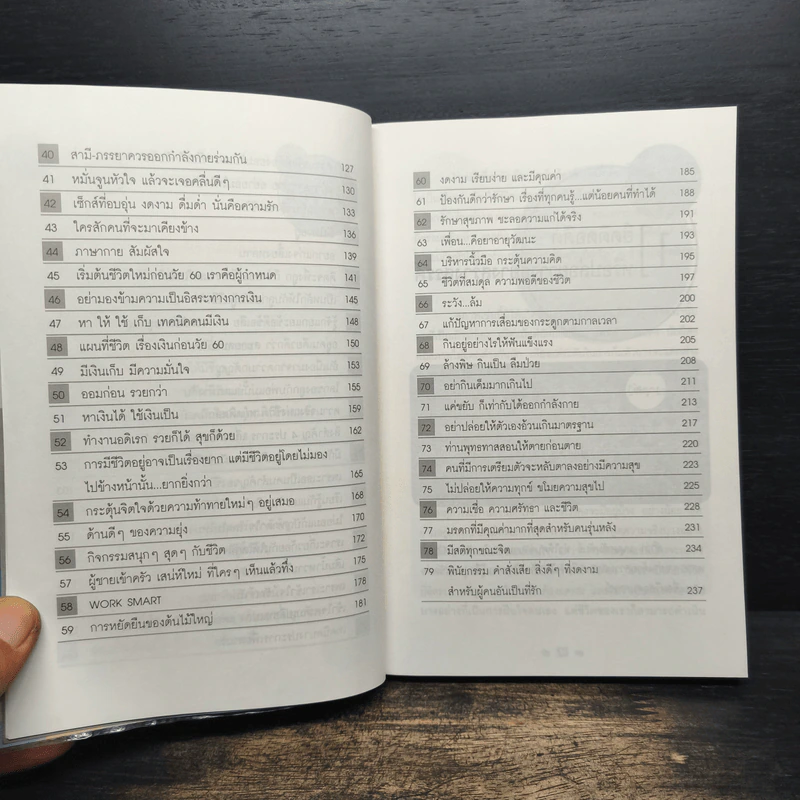 40 สามี-ภรรยาควรออกกำลังกายร่วมกัน 127
41 หมั่นจูนหัวใจ แล้วจะเจอคลื่นดีๆ 130
42 เซ็กส์ที่อบอุ่น งดงาม ดื่มด่ำ นั่นคือความรัก 133
43 ใครสักคนที่จะมาเคียงข้าง 136
44 ภาษากาย สัมผัสใจ 139
45 เริ่มต้นชีวิตใหม่ก่อนวัย 60 เราคือผู้กำหนด 141
46 อย่ามองข้ามความเป็นอิสระทางการเงิน 145
47 หา ให้ ใช้ เก็บ เทคนิคคนมีเงิน 148
48 แผนที่ชีวิต เรื่องเงินก่อนวัย 60 150
49 มีเงินเก็บ มีความมั่นใจ 153
50 ออมก่อน รวยกว่า 155
51 หาเงินได้ ใช้เงินเป็น 159
52 ทำงานอดิเรก รวยก็ได้ สุขก็ด้วย 162
53 การมีชีวิตอยู่อาจเป็นเรื่องยาก แต่มีชีวิตอยู่โดยไม่มอง
ไปข้างหน้านั้น...ยากยิ่งกว่า 165
54 กระตุ้นจิตใจด้วยความท้าทายใหม่ๆ อยู่เสมอ 168
55 ด้านดีๆ ของความยุ่ง 170
56 กิจกรรมสนุกๆ สุดๆ กับชีวิต 172
57 ผู้ชายเข้าครัว เสน่ห์ใหม่ ที่ใครๆ เห็นแล้วทึ่ง 175
58 WORK SMART 178
59 การหยัดยืนของต้นไม้ใหญ่ 181
60 งดงาม เรียบง่าย และมีคุณค่า 185
61 ป้องกันดีกว่ารักษา เรื่องที่ทุกคนรู้...แต่น้อยคนที่ทำได้ 188
62 รักษาสุขภาพ ชะลอความแก่ได้จริง 191
63 เพื่อน...คือยาอายุวัฒนะ 193
64 บริหารนิ้วมือ กระตุ้นความคิด 195
65 ชีวิตที่สมดุล ความพอดีของชีวิต 197
66 ระวัง...ล้ม 200
67 แก้ปัญหาการเสื่อมของกระดูกตามกาลเวลา 202
68 กินอยู่อย่างไรให้ฟันแข็งแรง 205
69 ล้างพิษ กินเป็น ลืมป่วย 208
70 อย่ากินเค็มมากเกินไป 211
71 แค่ขยับ ก็เท่ากับได้ออกกำลังกาย 213
72 อย่าปล่อยให้ตัวเองอ้วนเกินมาตรฐาน 217
73 ท่านพุทธทาสสอนให้ตายก่อนตาย 220
74 คนที่มีการเตรียมตัวจะหลับตาลงอย่างมีความสุข 223
75 ไม่ปล่อยให้ความทุกข์ ขโมยความสุขไป 225
76 ความเชื่อ ความศรัทธา และชีวิต 228
77 มรดกที่มีคุณค่ามากที่สุดสำหรับคนรุ่นหลัง 231
78 มีสติทุกขณะจิต 234
79 พินัยกรรม คำสั่งเสีย สิ่งดีๆ ที่งดงาม
สำหรับผู้คนอันเป็นที่รัก 237